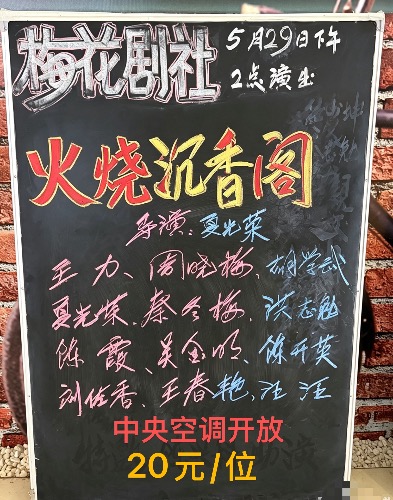 梅花剧社
5月29日下午
2点演出
火烧沉香阁
导演：夏光荣
王力、周晓梅、胡学武
夏光荣、蔡冬梅、洪志勉
陈霞、吴金明、陈开英
刘佐香、王春艳、汪汪
中央空调开放
20元/位